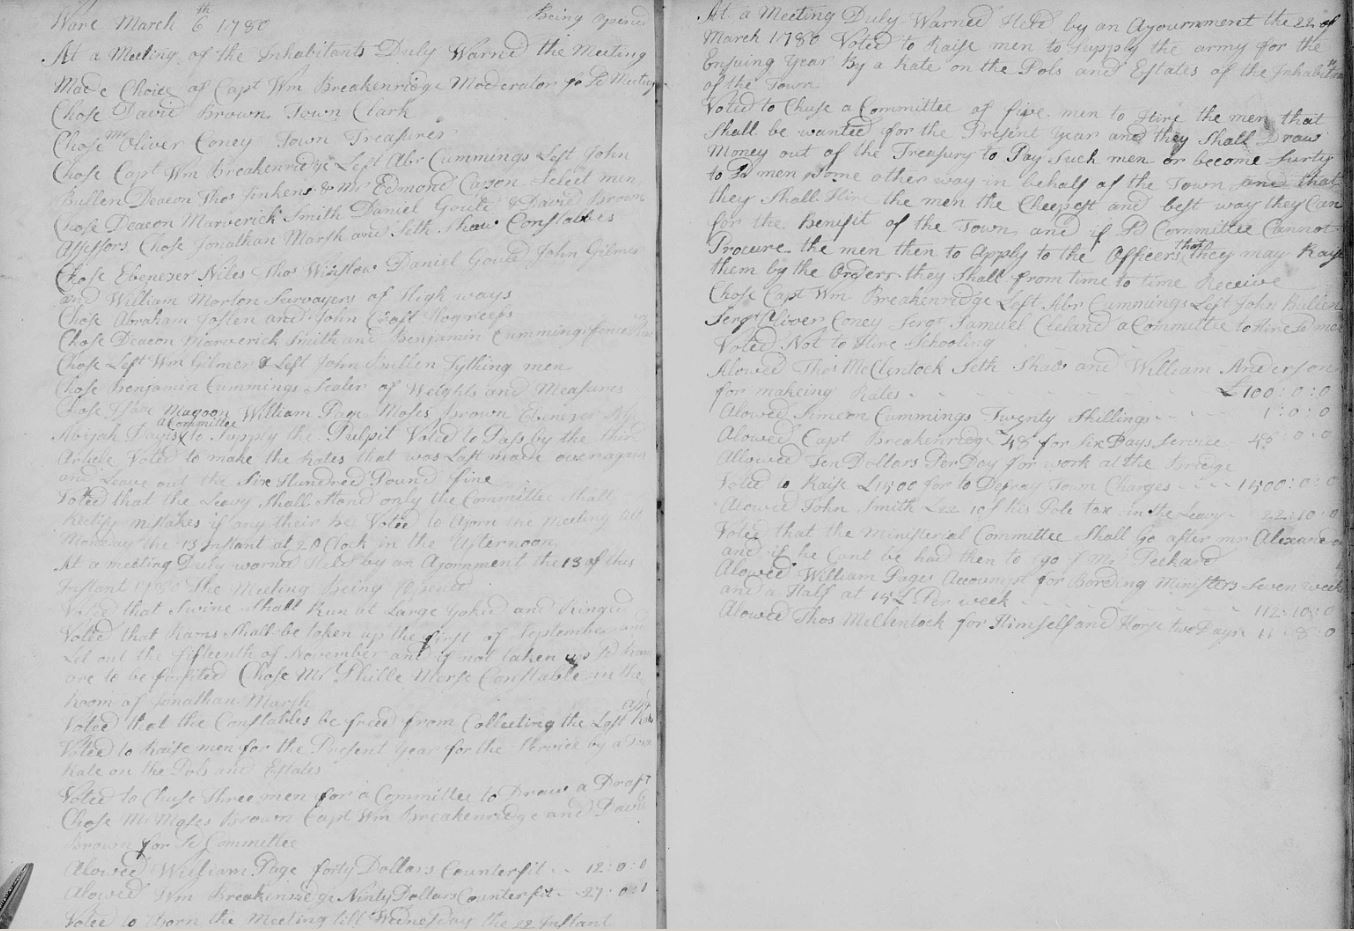 Ware March 6th 1780 Being opened
At a Meeting of the Inhabitants Duly Warned the Meeting
Made Choice of Capt Wm Breakenridge Moderator for sd Meeting
Chose David Brown Town Clark
Chose Mr Oliver Coney Town Treasurer
Chose Capt Wm Breakenridge Left Abr Cummings Left John
Bullen Deacon Thos Jenkens & Mr Edmond Carson Select men
Chose Deacon Maverick Smith Daniel Gould & David Brown
Assessors Chose Jonathan Marsh and Seth Shaw Constables
Chose Ebenezer Niles Thos Winslow Daniel Goued John Gilmer
and William Morton Survayers of High ways
Chose Abraham Joslen and John Croft Hogreefs
Chose Deacon Maverick Smith and Benjamin Cummings fence
Chose Left Wm Gilmer & Left John Bullen Tything men
Chose Benjamin Cummings Sealer of Weights and Measures
Chose Isaac Magoon William Page Moses Brown Ebenezer Nye
Abijah Davis a Committee to Supply the Pulpit Voted to Pass by the third
Article Voted to make the Rates that was Last made over again
and Leave out the Six Hundred Pound fine
Voted that the Levy Shall Stand only the Committee Shall
Rectify mistakes if any their be Voted to Ajorn the Meeting till
Monday the 13 Instant at 2 o Clock in the Afternoon
At a meeting Duly warnd Held by an Ajornment the 13 of this
Instant 1780 The Meeting Being opened
Voted that Swine Shall Run at Large Yoked and Ringed
Voted that Rams Shall be taken up the first of September and
Let out the fifteenth of November and if not taken up sd Rams
are to be forfited Chose Mr Phille Morse Constable in the
Room of Jonathan Marsh
Voted that the Constables be freed from Collecting the Last
Voted to Raise men for the Present Year for the Service by a Town
Rate on the Pols and Estates
Voted to Chuse three men for a Committee to Draw a Draft
Chose Mr Moses Brown Capt Wm Breakenridge and David
Brown for sd Committee
Alowed William Page forty Dollars Counterfit - - 12:0:0
Alowed Wm Breakinridge Ninty Dollars Counterfit - 27:0:0
Voted to Ajorn the Meeting till Wednesday the 22 Instant
At a Meeting Duly Warned Held by an Ajournment the 22 of
March 1780 Voted to Raise men to Supply the army for the
Ensuing Year By a Rate on the Pols and Estates of the Inhabitants
of the Town
Voted to Chuse a Committee of five men to Hire the men that
Shall be wanted for the Present year and they Shall Draw
Money out of the Treasury to Pay Such men or become Surty
to sd men Some other way in behalf of the Town and that
they Shall Hire the men the Cheepest and best way they Can
for the Benefit of the Town and if sd Committee Cannot
Procure the men then to Apply to the Officers that they may Raise
them by the Orders they Shall from time to time Receive
Chose Capt Wm Breakenridge Left Abr Cummings Left John Bullen
Sergt Oliver Coney Sergt Samuel Cleland a Committee to Hire sd men
Voted Not to Hire Schooling
Alowed Thos McClintock Seth Shaw and William Anderson
for makeing Rates - - - £100:0:0
Alowed Simeon Cummings Twenty Shillings - - - 1:0:0
Alowed Capt Breakenridge 48 for six Days Service - 48:0:0
Allowed Ten Dollars Per Day for work at the Bridge
Voted to Raise £1500 for to Defray Town Charges - - - 1500:0:0
Alowed John Smith £22 10 of his Pole tax in the Levy - 22:10:0
Voted that the Ministerial Committee Shall Go after mr Alexander
and if he Cant be had then to go f Mr Peckard
Alowed William Pages Accompt for Bording Ministers Seven weeks
and a Half at 15£ Per week - - - 112:10:0
Alowed Thos McClintock for Himself and Horse two Days 11:8:0